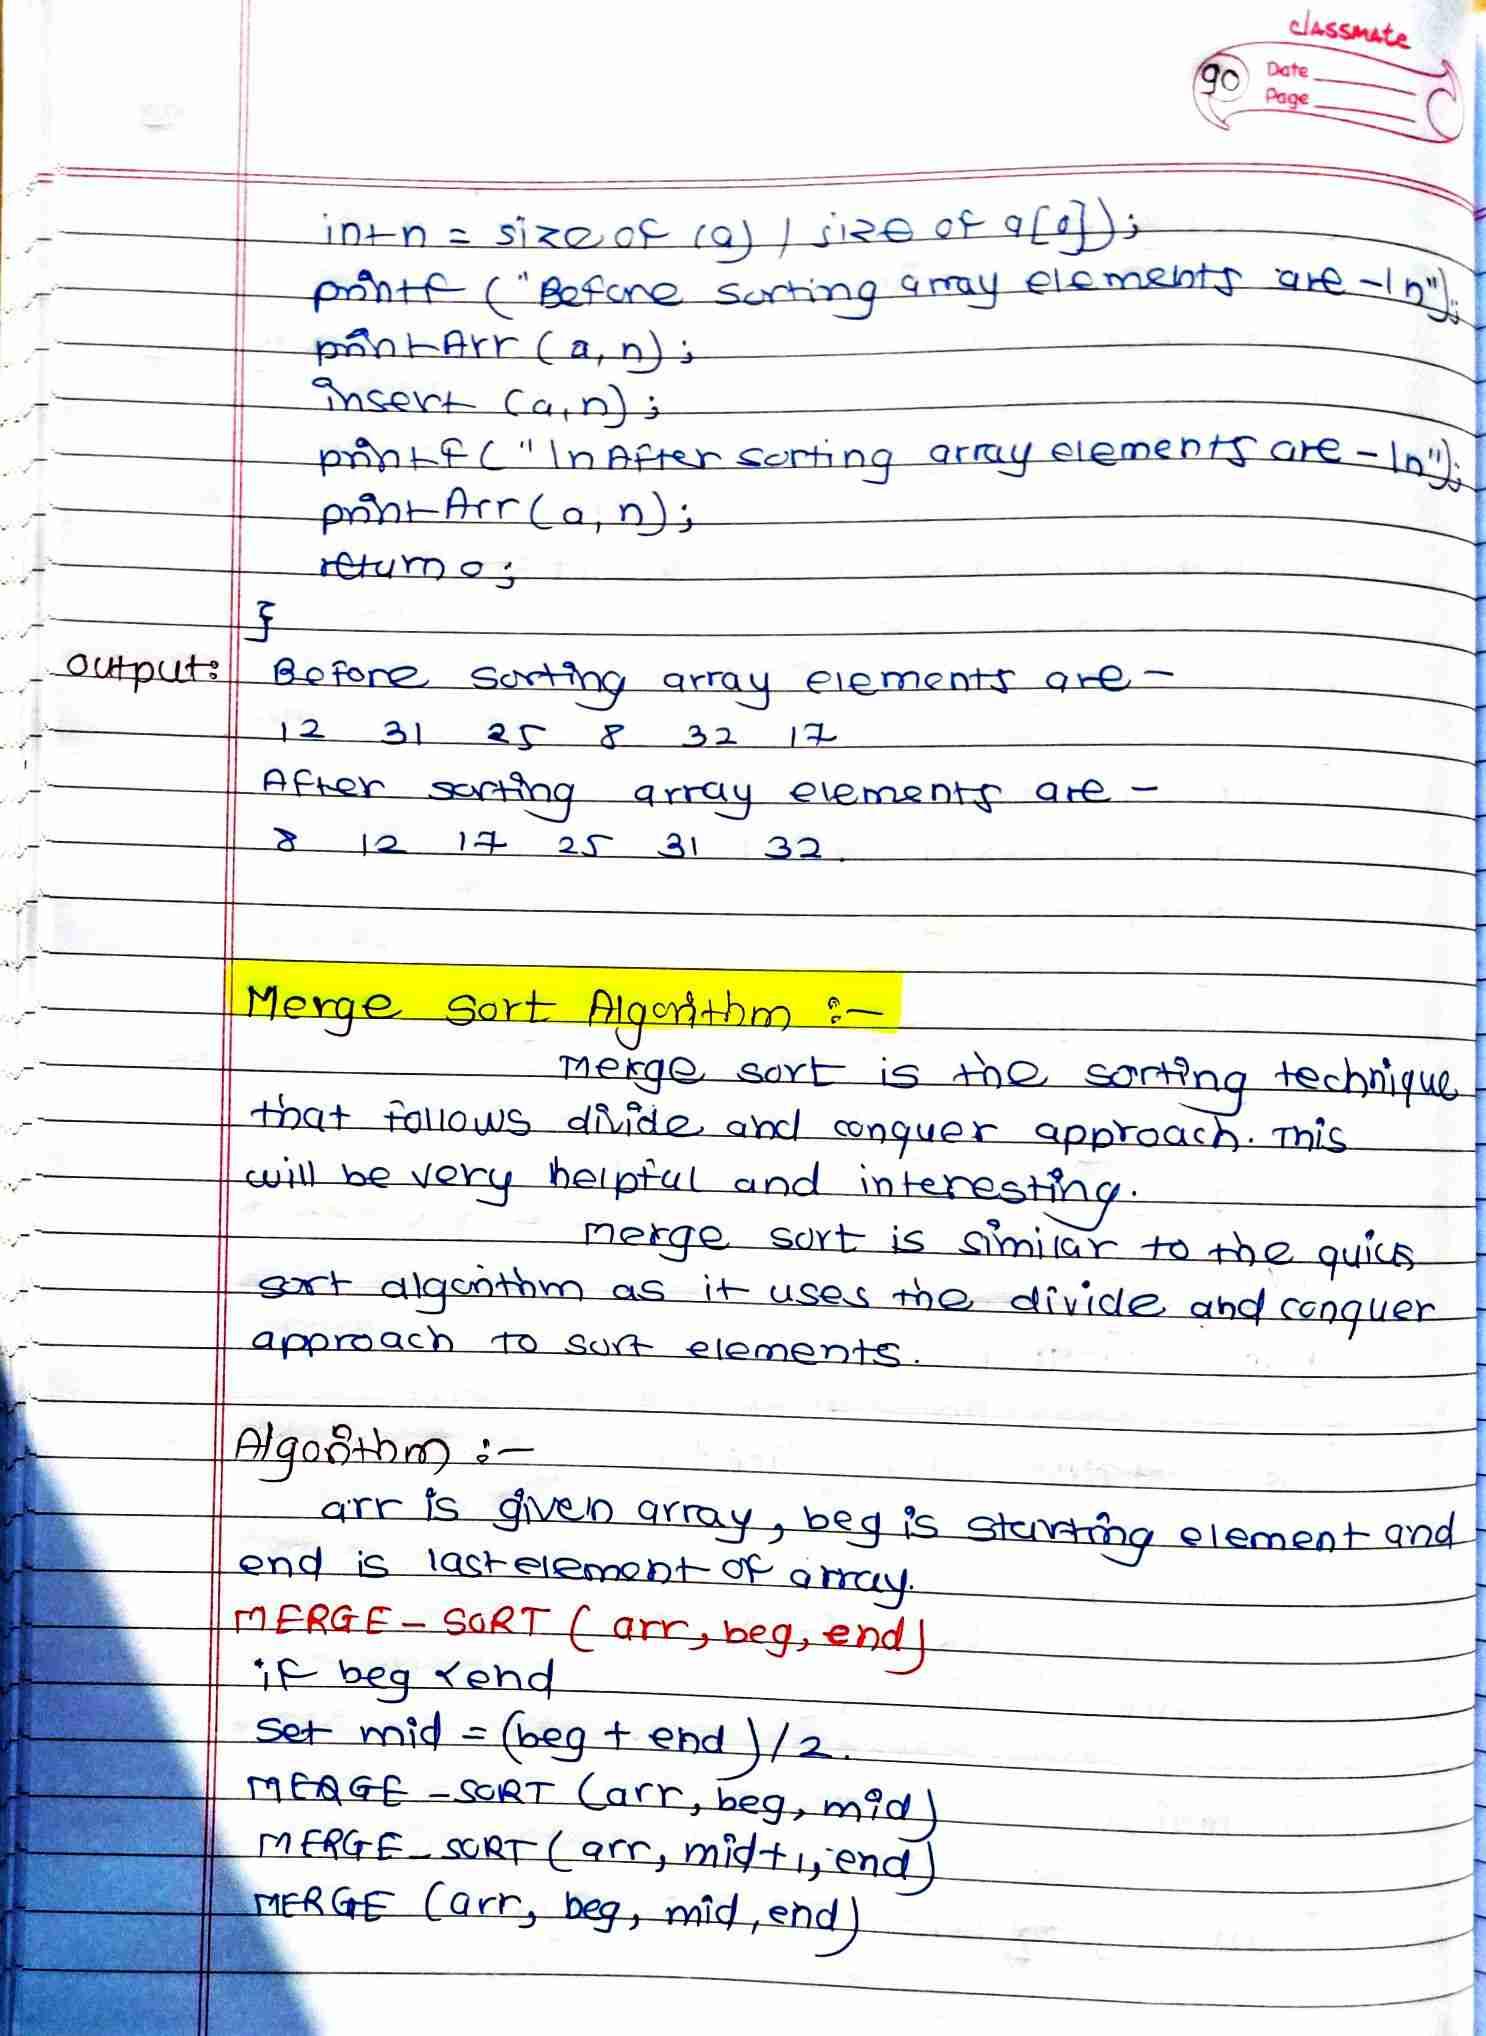 classmate
90
Date
Page
int n = size of (a) / size of a[0]);
printf ("Before sorting array elements are -\n");
printArr (a, n);
insert (a, n);
printf ("\n After sorting array elements are -\n");
printArr (a, n);
return 0;
}
output: Before sorting array elements are -
12 31 25 8 32 17
After sorting array elements are -
8 12 17 25 31 32.
Merge Sort Algorithm :-
merge sort is the sorting technique
that follows divide and conquer approach. This
will be very helpful and interesting.
merge sort is similar to the quick
sort algorithm as it uses the divide and conquer
approach to sort elements.
Algorithm :-
arr is given array, beg is starting element and
end is last element of array.
MERGE - SORT ( arr, beg, end)
if beg < end
set mid = (beg + end )/2.
MERGE - SORT (arr, beg, mid)
MERGE - SORT ( arr, mid+1, end)
MERGE (arr, beg, mid, end)